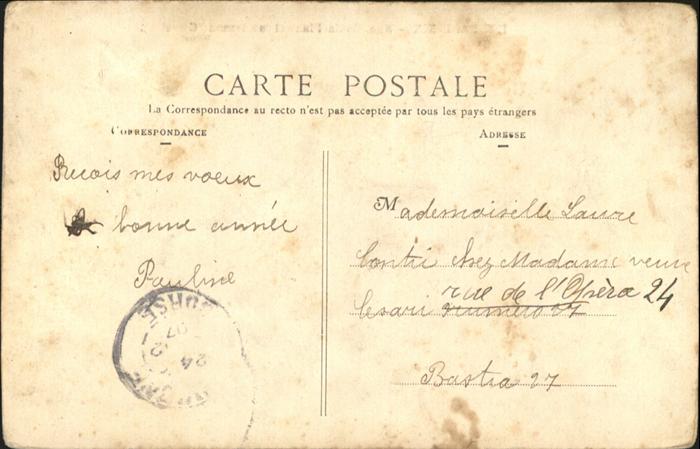 CARTE POSTALE
La Correspondance au recto n'est pas acceptée par tous les pays étrangers
CORRESPONDANCE
ADRESSE
Recois mes voeux
bonne année
Pauline
Mademoiselle Laure
Contii chez Madame veuve
Cesari numero 27
rue de l'Opèra 24
Bastia 27
24
07